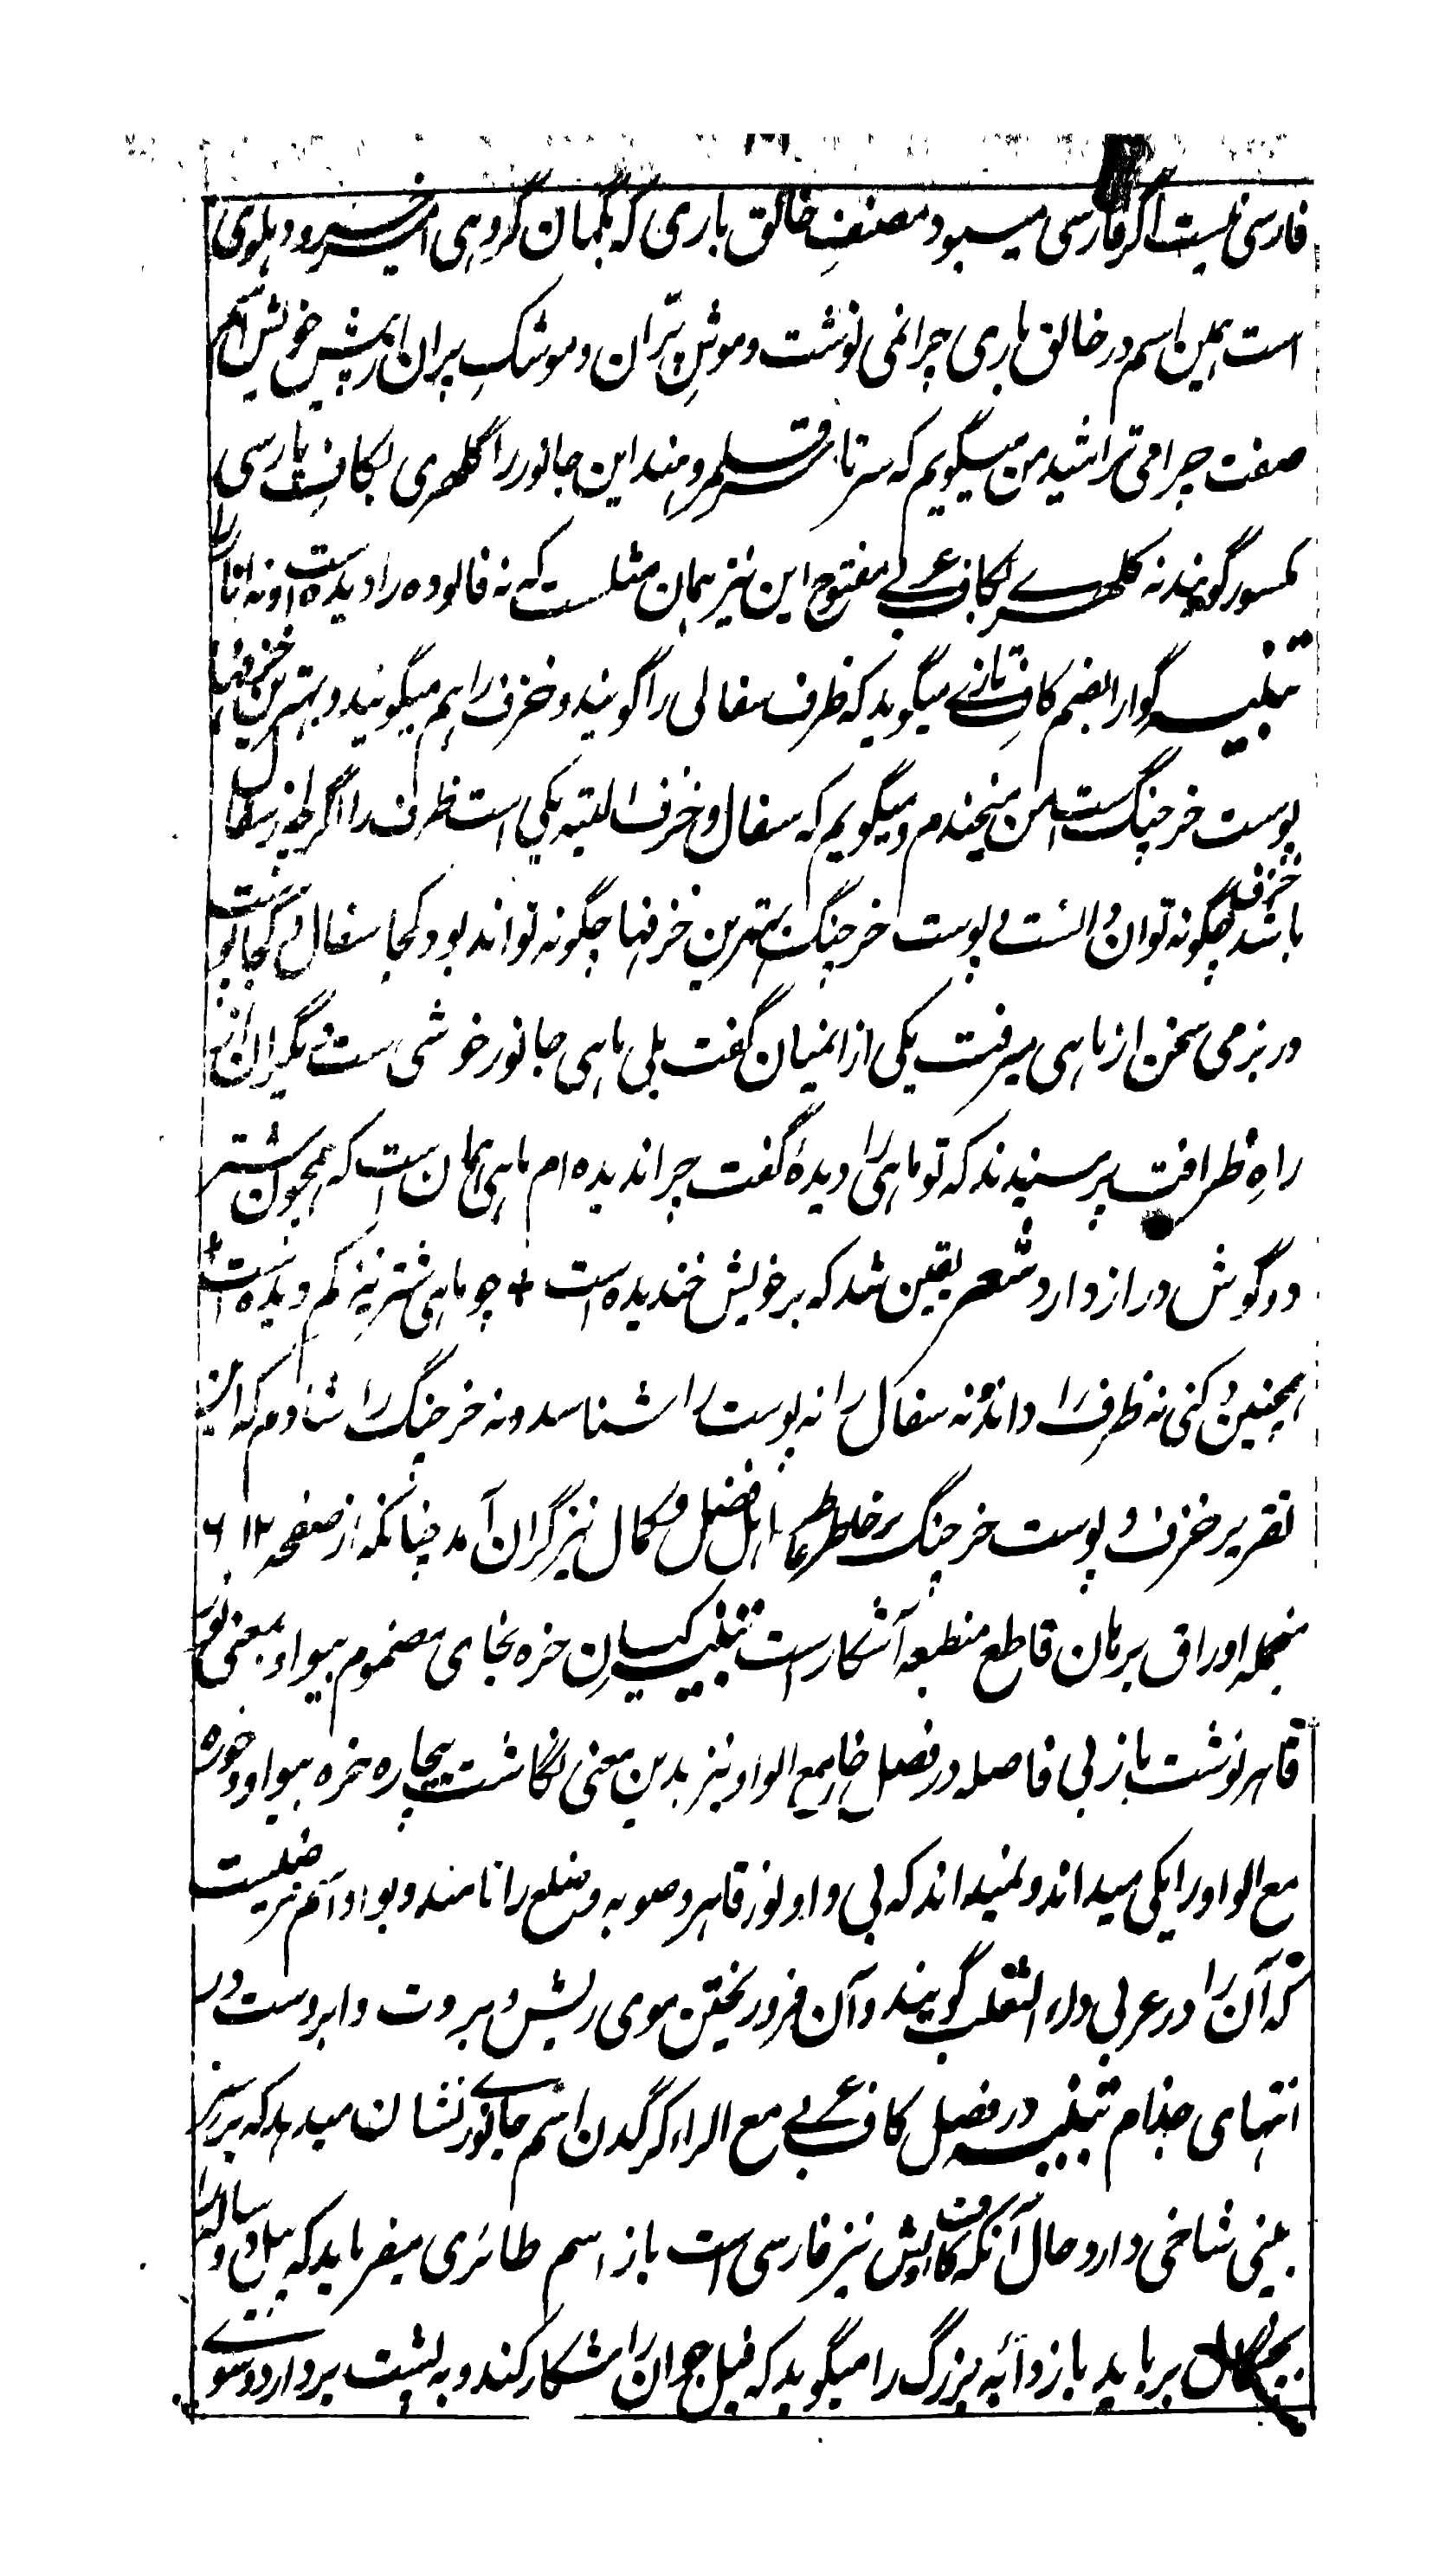 فارسی نیست اگر فارسی میبود مصنفِ خالق باری که بگمان گروهی امیر خسرو دہلوی
است ہمین اسم در خالق باری چرا نمی نوشت و موشِ پرّان و موشکِ پران از پیش خویش اسم
صفت چرا می تراشید من میگویم که سر تا سر قلمرو ہند این جانور را گلہری بکافِ پارسی
مکسور گویند نه کلہرے بکاف عربے مفتوح این نیز ہمان مثلست که نه فالوده را دیده است و نه انار را
تنبیہ گوار ابضم کافِ تازے میگوید که ظرف سفالی را گویند و خزف را ہم میگویند و بہترین خزفہا
پوست خرچنگ ست من میخندم و میگویم که سفال و خزف البته یکی است ظرف را اگر جز از سفال
باشد خزف چگونه توان دانست و پوست خرچنگ بہترین خزفہا چگونه تواند بود کجا سفال و کجا پوست
در بزمی سخن از ماہی میرفت یکی از انمیان گفت بلی ماہی جانور خوشی ست دیگران از
راهِ ظرافت پرسیدند که تو ماہی را دیدۂ گفت چرا ندیده ام ماہی ہمان است که ہمچون شتر
دو گوش دراز دارد شعر یقین شد که بر خویش خندیده است + چو ماہی شتر نیز کم دیده است +
ہمچنین دکنی نه ظرف را داند نه سفال را نه پوست را شناسد و نه خرچنگ را شادم که این
تقریر خزف و پوست خرچنگ بر خاطر اہل فضل و کمال نیز گران آمد چنانکه از صفحه ۶۱۲
منجمله اوراق برہان قاطع منطبعه آشکار است تنبیہ کیسان خره بخای مضموم بیواو بمعنی نور
قاہر نوشت باز بی فاصله در فصل خا مع الواو نیز بدین معنی نگاشت بیچاره خره بیواو و خوره
مع الواو را یکی میداند و نمیداند که بی واو نور قاہر و صوبه و ضلع را نامند و بواو اسم مرضیست
که آن را در عربی داء الثعلب گویند و آن فرو ریختن موی ریش و بروت و ابروست در
انتہای جذام تنبیہ در فصل کاف عربے مع الراء کرگدن اسم جانورے نشان میدہد که بر سر
بینی شاخی دارد و حال آنکه کافش نیز فارسی است باز اسم طائری میفرماید که پیل دو ساله را
بچنگال برباید باز دابّه بزرگ را میگوید که فیل جوان را شکار کند و به پشت بردارد و سوے